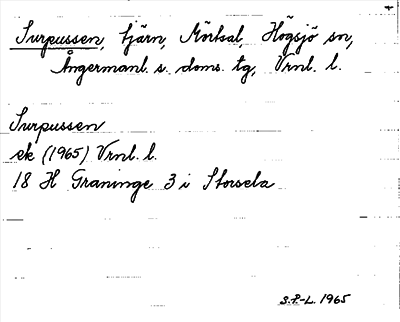 Surpussen, tjärn, Mörtsal, Högsjö sn,
Ångermanl. s. doms. tg, Vrnl. l.
Surpussen
ek (1965) Vrnl. l.
18 H Graninge 3 i Storsela
S.P-L. 1965